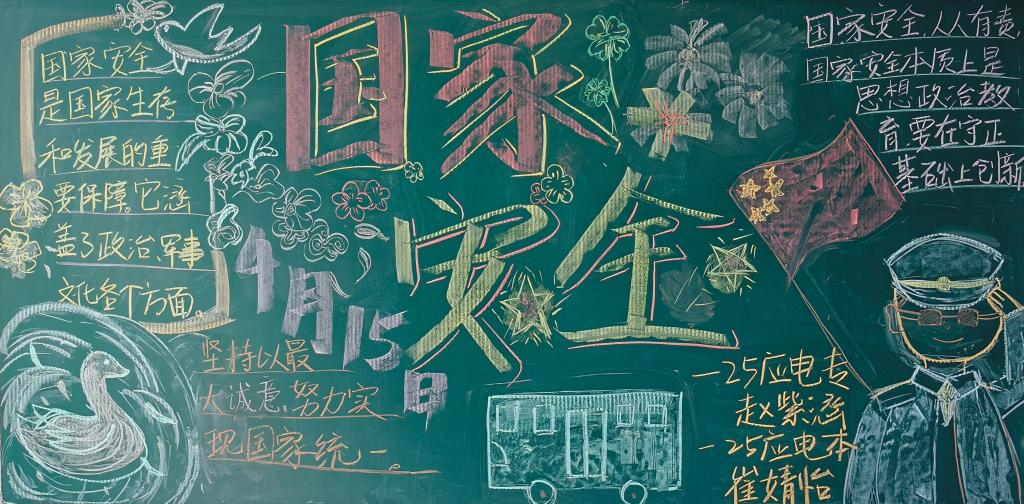 国家安全
是国家生存
和发展的重
要保障。它涵
盖了政治、军事
文化各个方面。
国家
安全
4月15日
坚持以最
大诚意、努力实
现国家统一。
国家安全,人人有责,
国家安全本质上是
思想政治教
育,要在守正
基础上创新
一25应电专
赵紫涵
一25应电本
崔婧怡